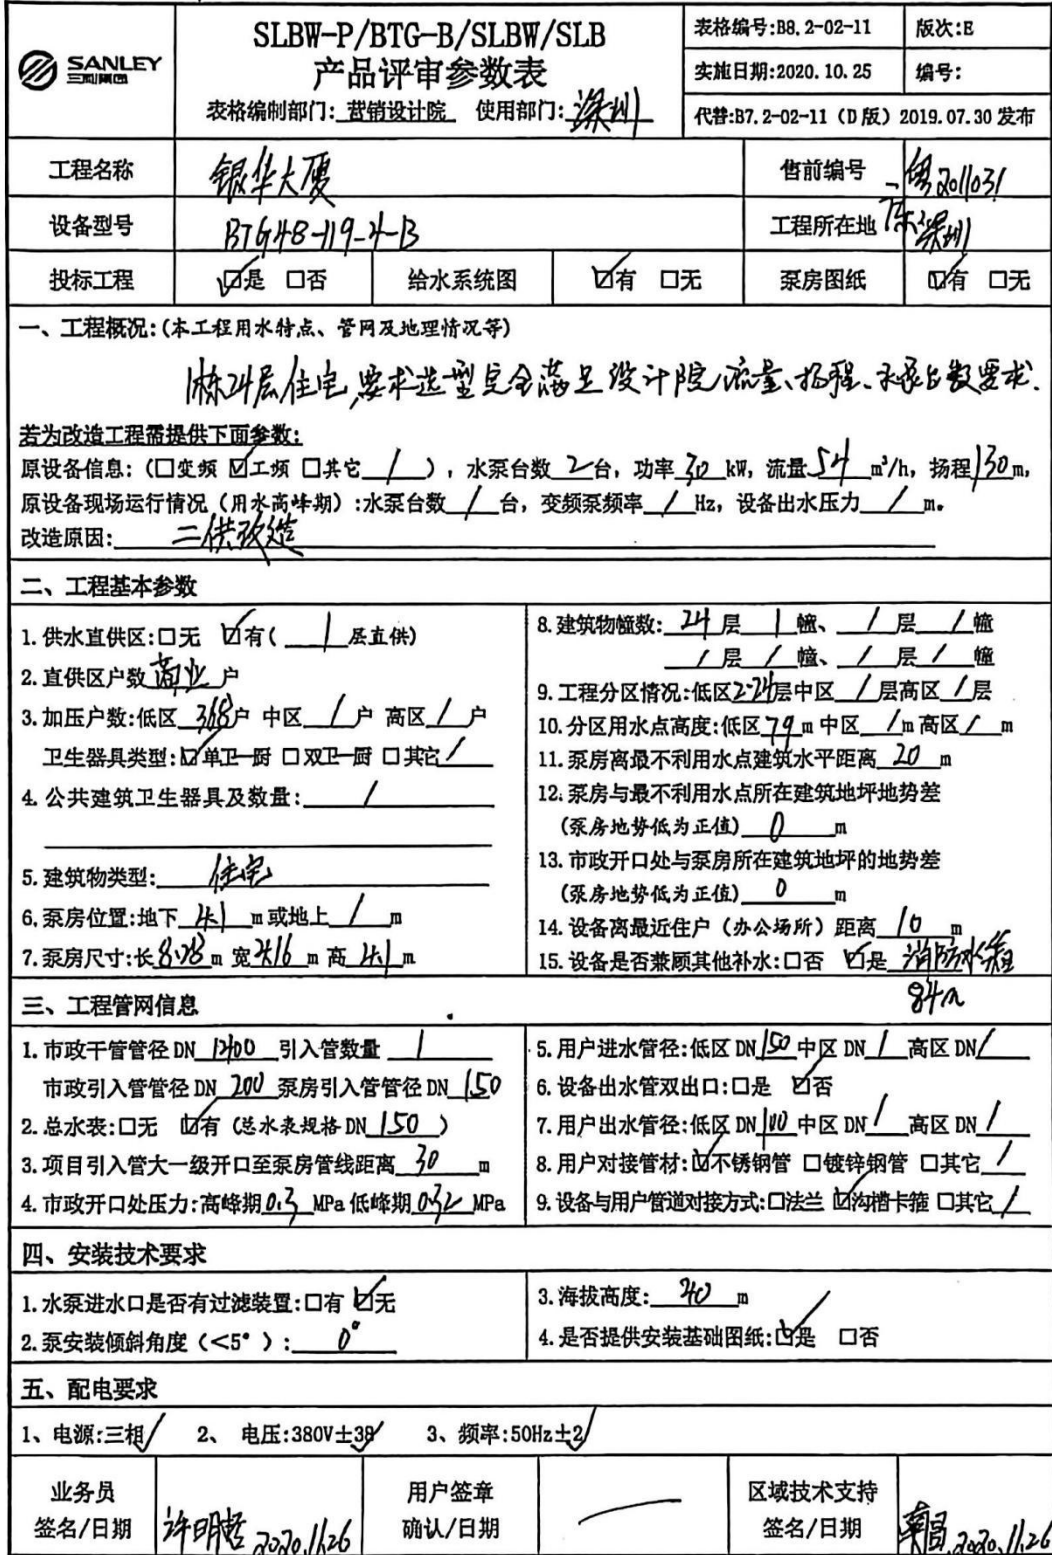 SANLEY
三利集团
SLBW-P/BTG-B/SLBW/SLB
产品评审参数表
表格编制部门: 营销设计院 使用部门: 深圳
表格编号:B8.2-02-11 版次:E
实施日期:2020.10.25 编号:
代替:B7.2-02-11（D版）2019.07.30 发布
工程名称 银华大厦 售前编号 粤2011031
设备型号 BTG48-119-4-B 工程所在地 广东深圳
投标工程 ☑是 □否 给水系统图 ☑有 □无 泵房图纸 ☑有 □无
一、工程概况:(本工程用水特点、管网及地理情况等)
1栋24层住宅,要求选型完全满足设计院流量、扬程、水泵台数要求.
若为改造工程需提供下面参数:
原设备信息:（□变频 ☑工频 □其它 / ），水泵台数 2 台，功率 30 kW，流量 54 m³/h，扬程 130 m，
原设备现场运行情况（用水高峰期）:水泵台数 / 台，变频泵频率 / Hz，设备出水压力 / m。
改造原因: 二供改造
二、工程基本参数
1.供水直供区:□无 ☑有( 1 层直供)
2.直供区户数 商业 户
3.加压户数:低区 368 户 中区 / 户 高区 / 户
卫生器具类型:☑单卫一厨 □双卫一厨 □其它 /
4.公共建筑卫生器具及数量: /
5.建筑物类型: 住宅
6.泵房位置:地下 4.1 m或地上 / m
7.泵房尺寸:长 8.28 m 宽 4.16 m 高 4.1 m
8.建筑物幢数: 24 层 1 幢、 / 层 / 幢
/ 层 / 幢、 / 层 / 幢
9.工程分区情况:低区 2-24 层中区 / 层高区 / 层
10.分区用水点高度:低区 79 m 中区 / m 高区 / m
11.泵房离最不利用水点建筑水平距离 20 m
12.泵房与最不利用水点所在建筑地坪地势差
(泵房地势低为正值) 0 m
13.市政开口处与泵房所在建筑地坪的地势差
(泵房地势低为正值) 0 m
14.设备离最近住户（办公场所）距离 10 m
15.设备是否兼顾其他补水:□否 ☑是 消防水箱
84m
三、工程管网信息
1.市政干管管径 DN 1200 引入管数量 1
市政引入管管径 DN 200 泵房引入管管径 DN 150
2.总水表:□无 ☑有 (总水表规格 DN 150 )
3.项目引入管大一级开口至泵房管线距离 30 m
4.市政开口处压力:高峰期 0.3 MPa 低峰期 0.32 MPa
5.用户进水管径:低区 DN 150 中区 DN / 高区 DN /
6.设备出水管双出口:□是 ☑否
7.用户出水管径:低区 DN 100 中区 DN / 高区 DN /
8.用户对接管材:☑不锈钢管 □镀锌钢管 □其它 /
9.设备与用户管道对接方式:□法兰 ☑沟槽卡箍 □其它 /
四、安装技术要求
1.水泵进水口是否有过滤装置:□有 ☑无
2.泵安装倾斜角度（<5°）: 0°
3.海拔高度: 40 m
4.是否提供安装基础图纸:☑是 □否
五、配电要求
1、电源:三相 2、 电压:380V±38 3、频率:50Hz±2
业务员
签名/日期 许明哲 2020.11.26
用户签章
确认/日期
区域技术支持
签名/日期 2020.11.26